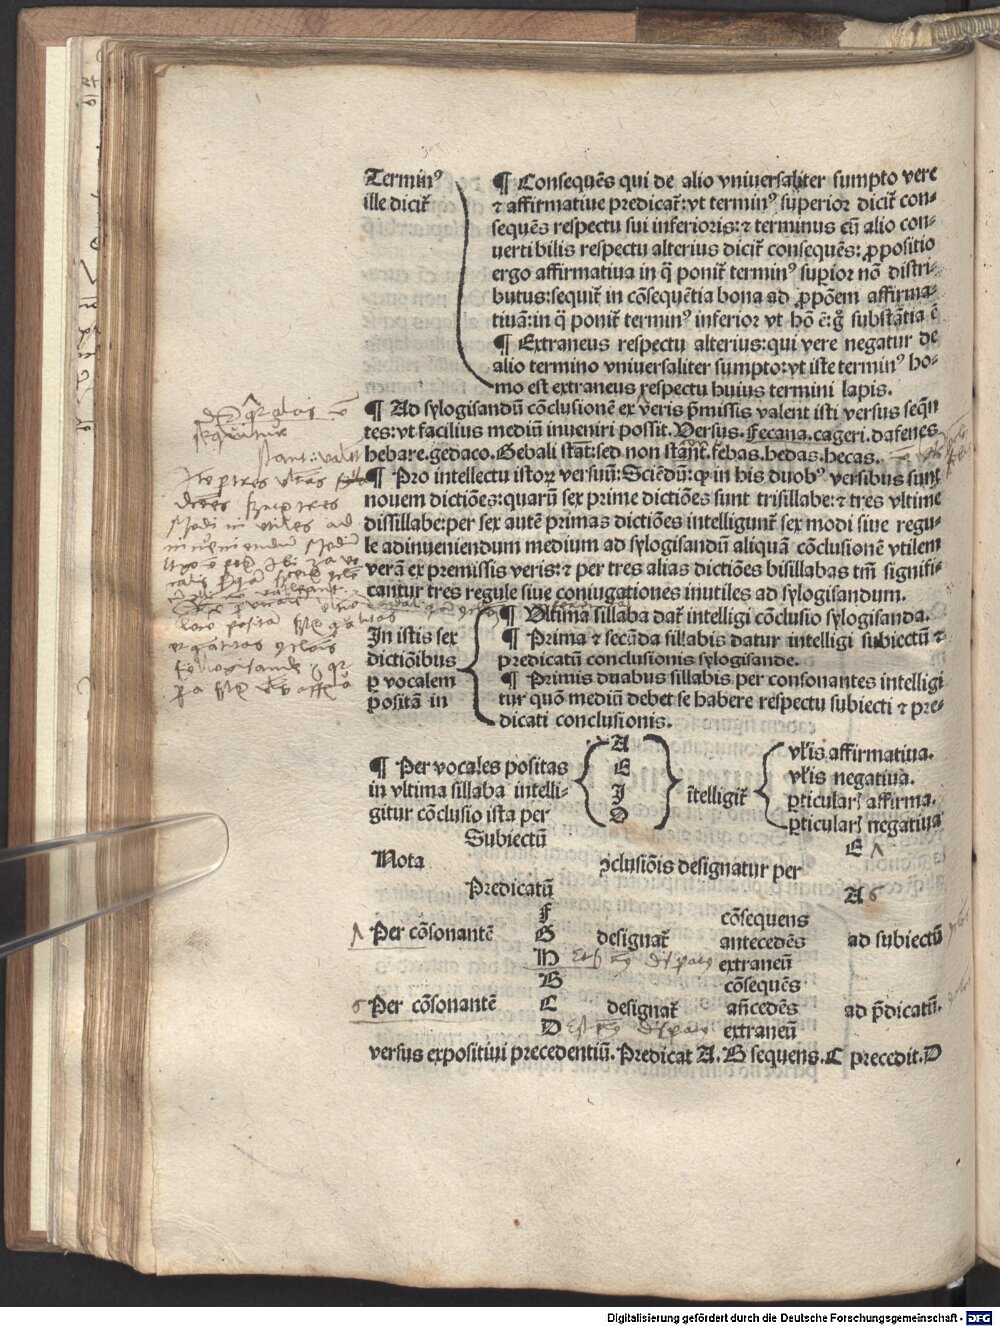 Terminꝰ
ille dicit̃
¶ Consequẽs qui de alio vniuersaliter sumpto vere
⁊ affirmatiue predicat̃: vt terminꝰ superior dicit̃ con-
sequẽs respectu sui inferioris: ⁊ terminus cũ alio con-
uertibilis respectu alterius dicit̃ consequẽs: ꝓpositio
ergo affirmatiua in q̃ ponit̃ terminꝰ suꝑior nõ distri-
butus: sequit̃ in cõsequẽtia bona ad ꝓpõem affirma-
tiuã: in q̃ ponit̃ terminꝰ inferior vt hõ ẽ: g̊ substãtia ẽ
¶ Extraneus respectu alterius: qui vere negatur de
alio termino vniuersaliter sumpto: vt iste terminꝰ ho-
mo est extraneus respectu huius termini lapis.
¶ Ad sylogisandũ cõclusionẽ ex veris p̃missis valent isti versus seq̃n
tes: vt facilius mediũ inueniri possit. Versus. Fecana. cageri. dafenes
hebare. gedaco. Gebali stãt: sed non stãnt. febas. hedas. hecas.
¶ Pro intellectu istoꝝ versuũ: Sciẽdũ: ꝙ in his duobꝰ versibus sunt
nouem dictiões: quarũ sex prime dictiões sunt trisillabe: ⁊ tres vltime
dissillabe: per sex autẽ primas dictiões intelligunt̃ sex modi siue regu-
le ad inueniendum medium ad sylogisandũ aliquã cõclusionẽ vtilem
verã ex premissis veris: ⁊ per tres alias dictiões bisillabas tm̃ signifi-
cantur tres regule siue coniugationes inutiles ad sylogisandum.
In istis sex
dictiõibus
ꝑ vocalem
positã in
¶ Vltima sillaba dat̃ intelligi cõclusio sylogisanda.
¶ Prima ⁊ secũda sillabis datur intelligi subiectũ ⁊
predicatũ conclusionis sylogisande.
¶ Primis duabus sillabis per consonantes intelligi
tur quõ mediũ debet se habere respectu subiecti ⁊ pre-
dicati conclusionis.
¶ Per vocales positas
in vltima sillaba intelli-
gitur cõclusio ista per
A
E
I
O
ĩtelligit̃
vl̃is affirmatiua.
vl̃is negatiua.
ꝑticularꝭ affirma.
ꝑticularꝭ negatiua
Subiectũ E
Nota ꝯclusiõis designatur per
Predicatũ A
F cõsequens
Per cõsonantẽ G designat̃ antecedẽs ad subiectũ
H extraneũ
B cõsequẽs
Per cõsonantẽ C designat̃ añcedẽs ad p̃dicatũ.
D extraneũ
versus expositiui precedentiũ. Predicat A. B sequens. C precedit. D
Digitalisierung gefördert durch die Deutsche Forschungsgemeinschaft - DFG